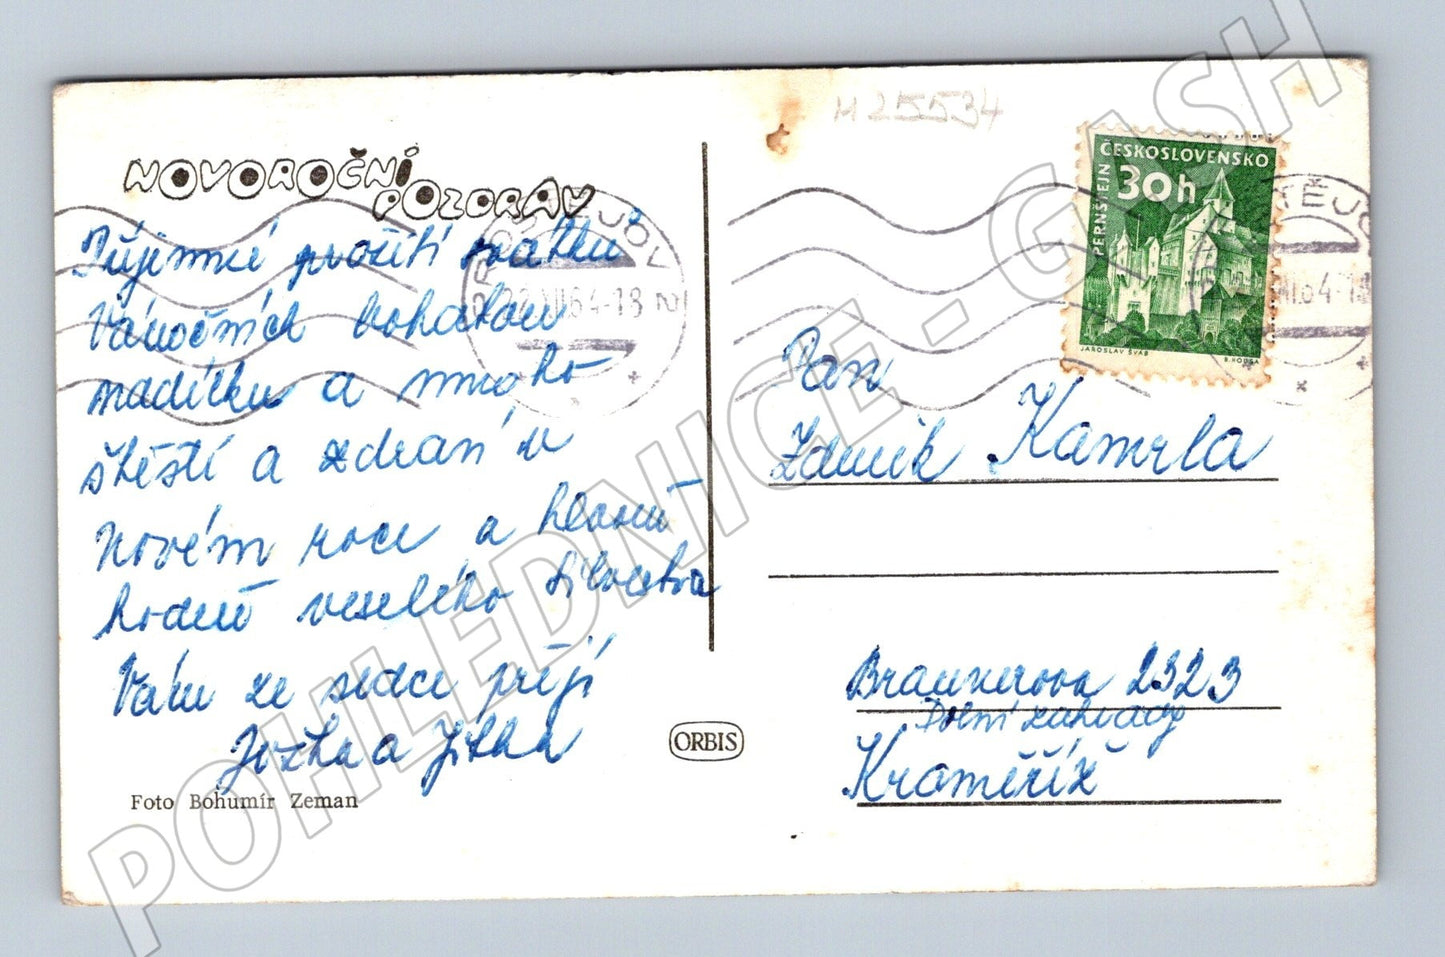 M 25534
NOVOROČNÍ
POZDRAV
Příjemné prožití svátků
Vánočních bohatou
nadílku a mnoho
štěstí a zdraví v
Novém roce a hlavně
hodně veselého Silvestra
Vám ze srdce přejí
Jožka a Jitka
Foto Bohumír Zeman
ORBIS
ČESKOSLOVENSKO
30h
PERNŠTEJN
JAROSLAV ŠVÁB
PROSTĚJOV 2
22.XII.64-18
Pan
Zdeněk Kamrla
Braunerova 2323
Dolní zahrady
Kroměříž
POHLEDNICE - GASH